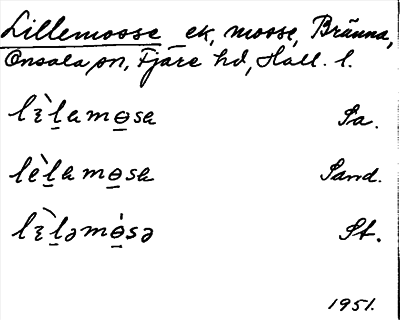 Lillemosse ek, mosse, Bränna,
Onsala sn, Fjäre hd, Hall. l.
lɛ̀l̠amɵ̠sa Sa.
lèl̠amɵ̠sa Sand.
lɛ̀l̠əmɵ̠́sə St.
1951.